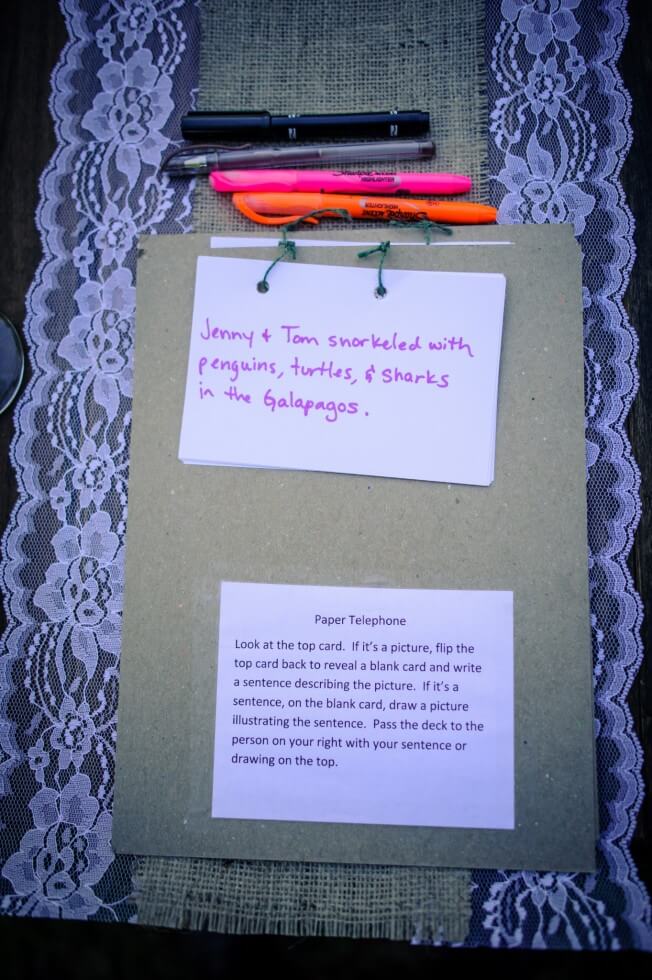 HIGHLIGHTER
Sharpie ACCENT
HIGHLIGHTER
Jenny & Tom snorkeled with
penguins, turtles, & sharks
in the Galapagos.
Paper Telephone
Look at the top card. If it's a picture, flip the
top card back to reveal a blank card and write
a sentence describing the picture. If it's a
sentence, on the blank card, draw a picture
illustrating the sentence. Pass the deck to the
person on your right with your sentence or
drawing on the top.